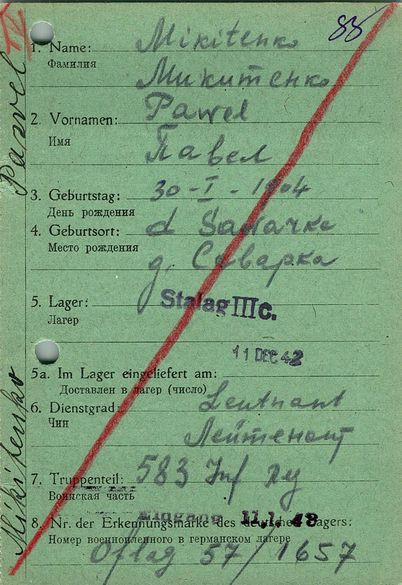 IV
88
1. Name: Mikitenko
Фамилия Микитенко
2. Vornamen: Pawel
Имя Павел
3. Geburtstag: 30-I-1904
День рождения
4. Geburtsort: d
Место рождения д.
5. Lager: Stalag IIIc.
Лагер
11 DEC 42
5a. Im Lager eingeliefert am:
Доставлен в лагер (число)
6. Dienstgrad: Leutnant
Чин Лейтенант
7. Truppenteil: 583 Inf
Воинская часть
Eingang 11.1.43
8. Nr. der Erkennungsmarke des deutschen Lagers:
Номер военнопленного в германском лагере
Oflag 57/1657
Mikitenko Pawel